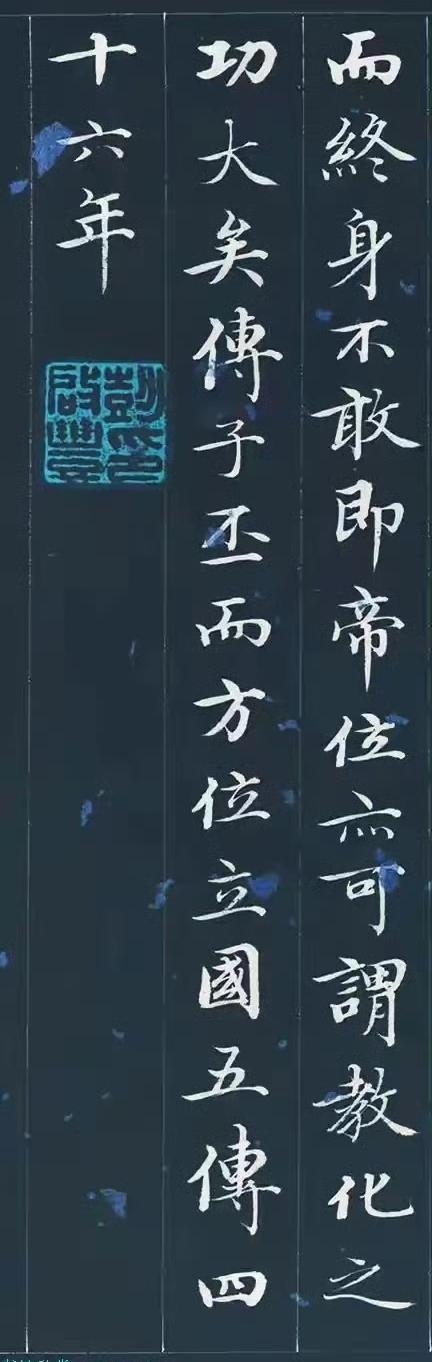 而終身不敢即帝位亦可謂教化之
功大矣傳子丕而方位立國五傳四
十六年
彭啟豐印